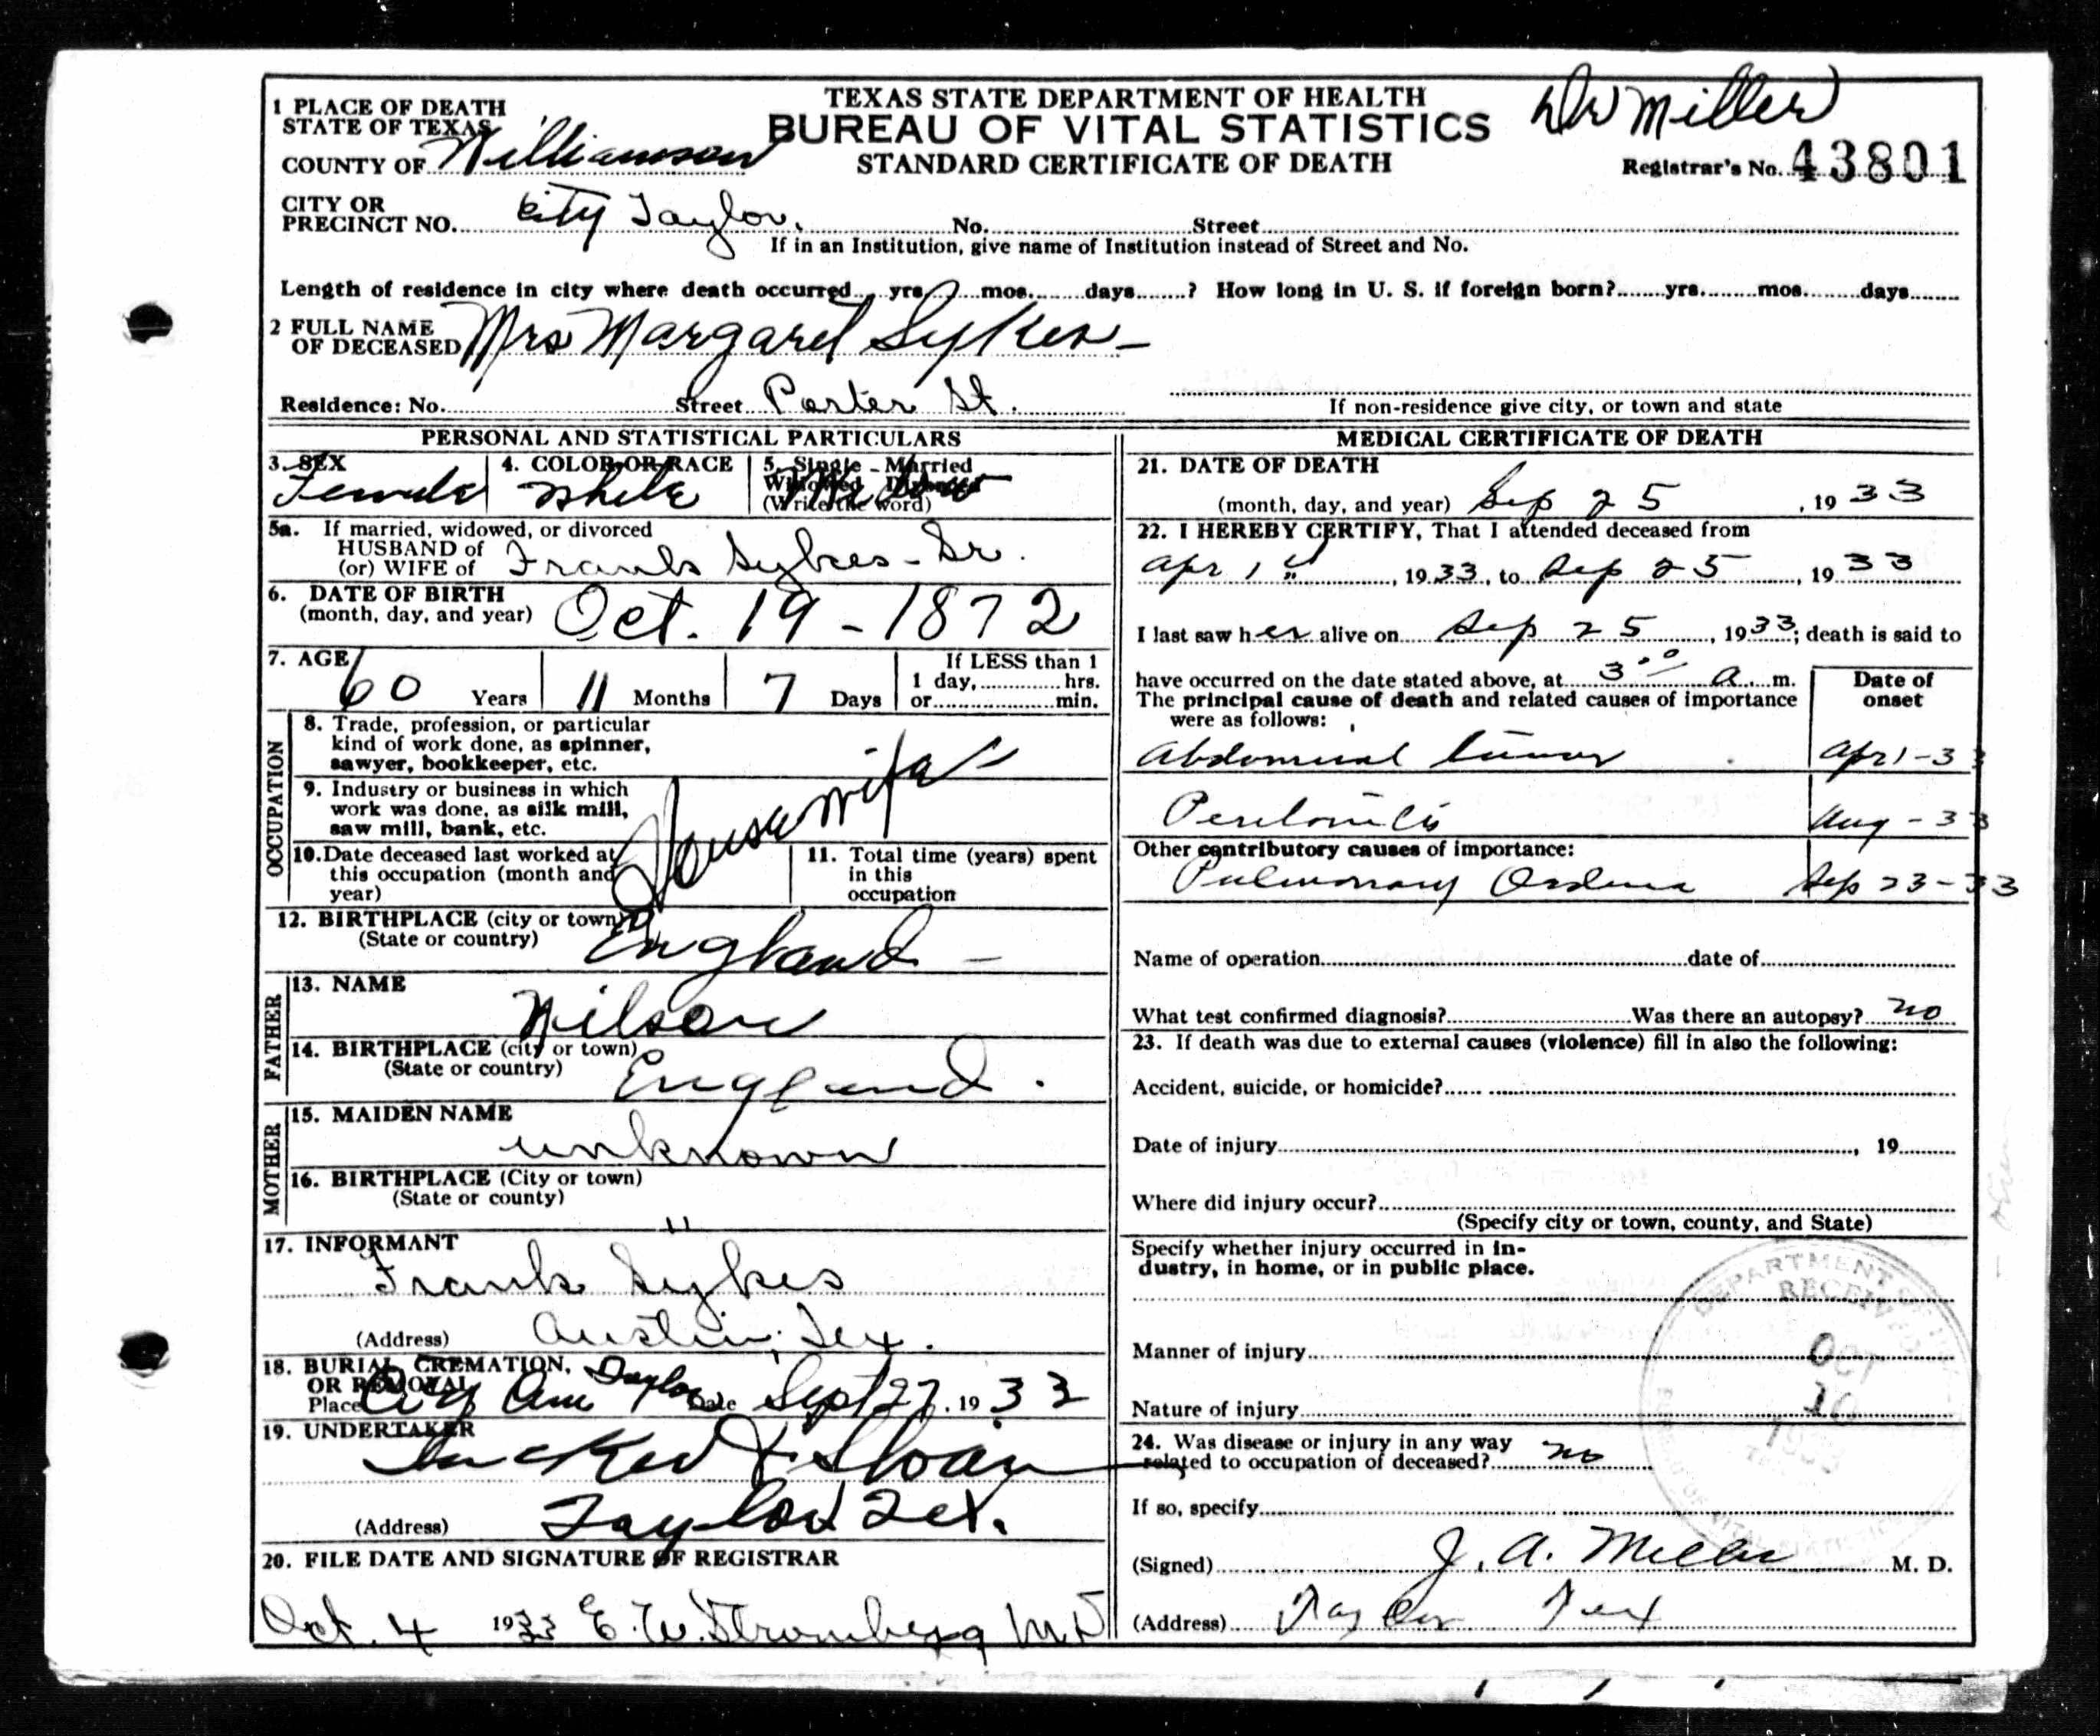 1 PLACE OF DEATH
STATE OF TEXAS
COUNTY OF Williamson
TEXAS STATE DEPARTMENT OF HEALTH
BUREAU OF VITAL STATISTICS
STANDARD CERTIFICATE OF DEATH
Dr Miller
Registrar's No. 43801
CITY OR
PRECINCT NO. City Taylor. No. Street
If in an Institution, give name of Institution instead of Street and No.
Length of residence in city where death occurred yrs mos. days ? How long in U. S. if foreign born? yrs. mos. days
2 FULL NAME
OF DECEASED Mrs Margaret Sykes-
Residence: No. Street Porter St.
If non-residence give city, or town and state
PERSONAL AND STATISTICAL PARTICULARS
3. SEX Female
4. COLOR OR RACE White
5. Single - Married
Widowed Divorced
(Write the word) Widow
5a. If married, widowed, or divorced
HUSBAND of
(or) WIFE of Frank Sykes - Sr.
6. DATE OF BIRTH
(month, day, and year) Oct. 19 - 1872
7. AGE 60 Years 11 Months 7 Days
If LESS than 1
1 day, hrs.
or min.
OCCUPATION
8. Trade, profession, or particular
kind of work done, as spinner,
sawyer, bookkeeper, etc.
9. Industry or business in which
work was done, as silk mill,
saw mill, bank, etc.
Housewife
10. Date deceased last worked at
this occupation (month and
year)
11. Total time (years) spent
in this
occupation
12. BIRTHPLACE (city or town)
(State or country) England -
FATHER
13. NAME Wilson
14. BIRTHPLACE (city or town)
(State or country) England.
MOTHER
15. MAIDEN NAME
unknown
16. BIRTHPLACE (City or town)
(State or county)
"
17. INFORMANT
Frank Sykes
(Address) Austin, Tex.
18. BURIAL, CREMATION,
OR REMOVAL
Place City Cem Taylor Date Sept 27, 1933
19. UNDERTAKER
Tucker & Sloan
(Address) Taylor Tex.
20. FILE DATE AND SIGNATURE OF REGISTRAR
Oct. 4 1933 E. W. Stromberg M.D
MEDICAL CERTIFICATE OF DEATH
21. DATE OF DEATH
(month, day, and year) Sep 25, 1933
22. I HEREBY CERTIFY, That I attended deceased from
Apr 1", 1933, to Sep 25, 1933
I last saw her alive on Sep 25, 1933; death is said to
have occurred on the date stated above, at 3:00 a. m.
The principal cause of death and related causes of importance
were as follows:
Date of
onset
Abdominal tumor Apr 1-33
Peritonitis Aug - 33
Other contributory causes of importance:
Pulmonary Oedema Sep 23-33
Name of operation date of
What test confirmed diagnosis? Was there an autopsy? no
23. If death was due to external causes (violence) fill in also the following:
Accident, suicide, or homicide?
Date of injury , 19
Where did injury occur?
(Specify city or town, county, and State)
Specify whether injury occurred in in-
dustry, in home, or in public place.
Manner of injury
Nature of injury
24. Was disease or injury in any way
related to occupation of deceased? no
If so, specify
(Signed) J. A. Miller M. D.
(Address) Taylor Tex
DEPARTMENT
RECEIVED
OCT
10
1933
BUREAU OF VITAL STATISTICS